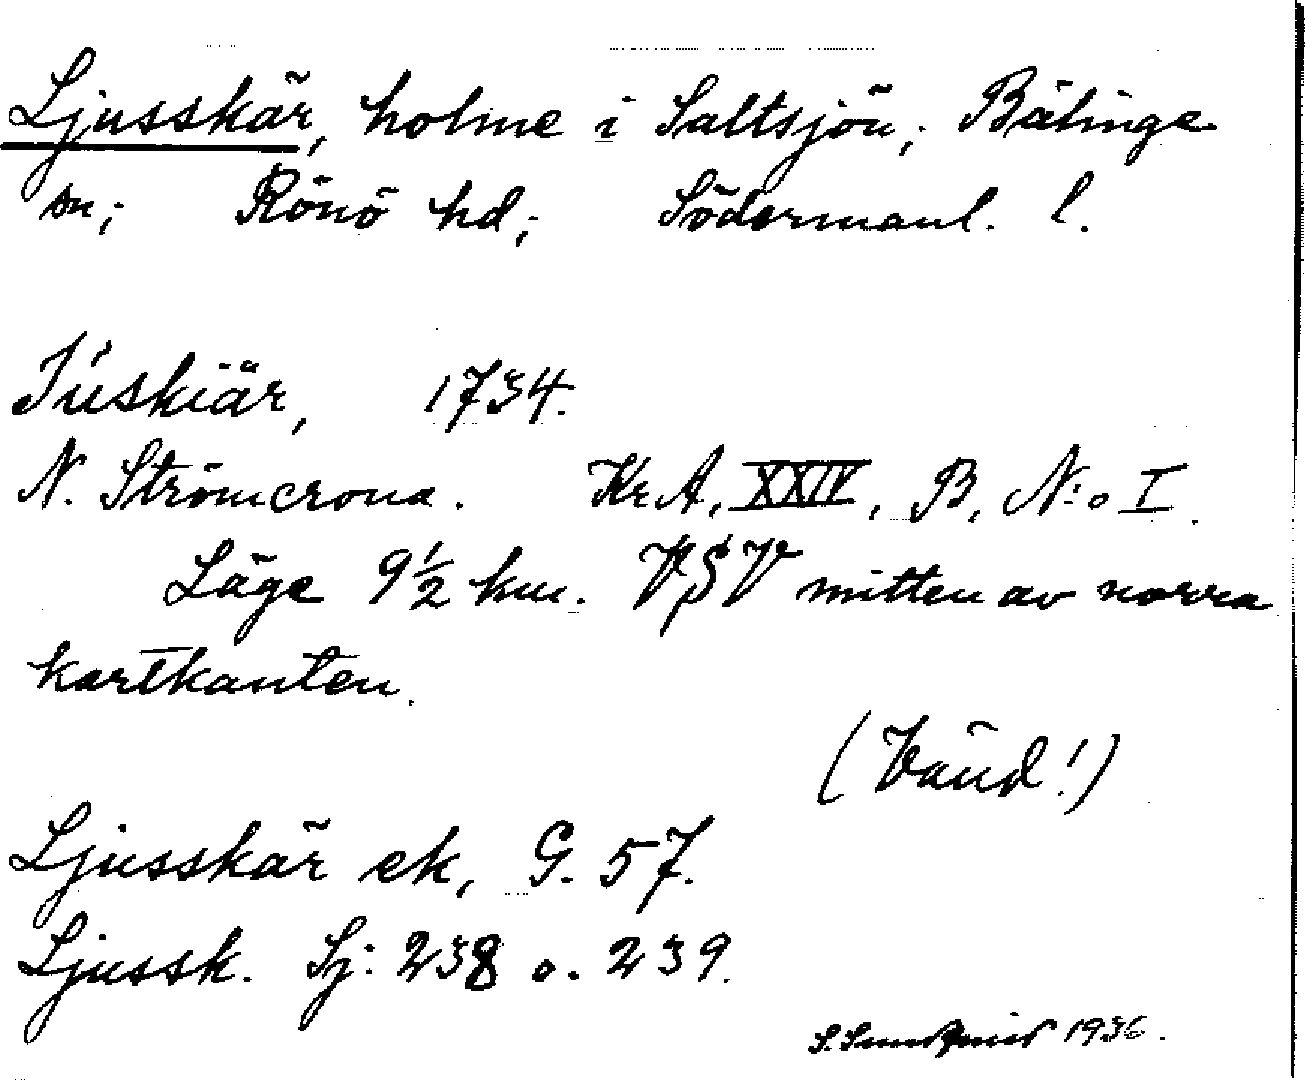 Ljusskär, holme i Saltsjön; Bälinge
sn; Rönö hd; Södermanl. l.
Júskiär, 1734.
N. Strömcrona. Kr. A, XXIV, B, N:o I.
Läge 9 1/2 km. VSV mitten av norra
kartkanten.
(Vänd!)
Ljusskär ek, G. 57.
Ljussk. Sj: 238 o. 239.
S. 1936.